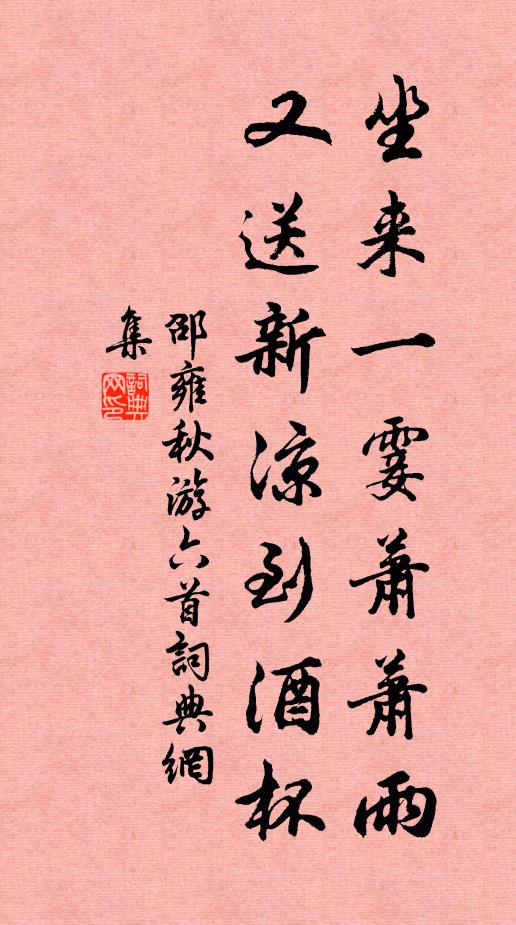 坐来一霎蕭蕭雨
又送新凉到酒杯
邵雍秋游六首詞典網
集
詞典
网印